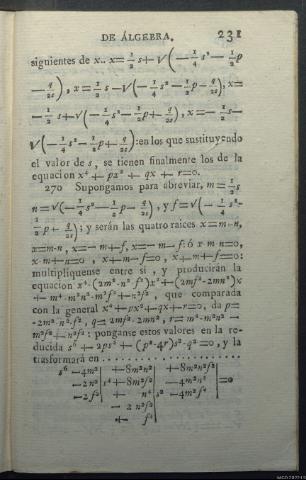 DE ÁLGEBRA. 231
siguientes de x.. x=½s+√(−¼s²−½p
−q/2s), x=½s−√(−¼s²−½p−q/2s), x=
−½s+√(−¼s²−½p+q/2s), x=−½s−
√(−¼s²−½p+q/2s): en los que sustituyendo
el valor de s, se tienen finalmente los de la
equacion x⁴+px²+qx+r=o.
270 Supongamos para abreviar, m=½s
n=√(−¼s²−½p−q/2s), y f=√(−¼s²−
½p+q/2s); y serán las quatro raices x=m+n,
x=m-n, x=-m+f, x=-m-f: ó x-m-n=o,
x-m+n=o, x+m-f=o, x+m+f=o:
multipliquense entre sí, y producirán la
equacion x⁴-(2m²-n²-f²)x²+(2mf²-2mn²)x
+m⁴-m²n²-m²f²+n²f², que comparada
con la general x⁴+px²+qx+r=o, da p=
-2m²-n²-f², q=2mf²-2mn², r=m⁴-m²n²-
m²f²+n²f²: ponganse estos valores en la re-
ducida s⁶+2ps⁴+(p²-4r)s²-q²=o, y la
trasformará en
s⁶ -4m² | +8m²n² | +8m²n²f²
-2n² | s⁴+8m²f² | -4m²n⁴ =o
-2f² | +n⁴ | s² -4m²f⁴
-2n²f²
+f⁴